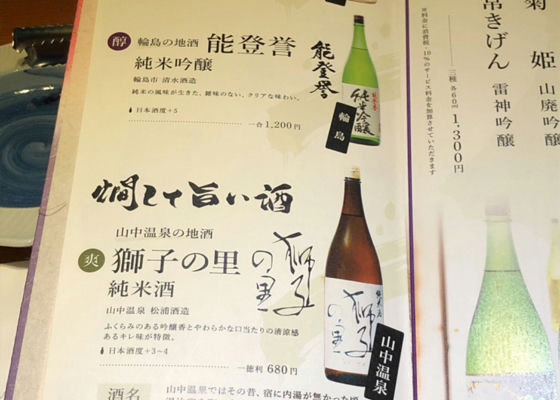 醇 輪島の地酒 能登誉
純米吟醸
輪島市 清水酒造
純米の風味が生きた、雑味のない、クリアな味わい。
日本酒度+5
一合 1,200円
能登誉
純米吟醸
輪島
燗して旨い酒
山中温泉の地酒
爽 獅子の里
純米酒
山中温泉 松浦酒造
ふくらみのある吟醸香とやわらかな口当たりの清涼感
あるキレ味が特徴。
日本酒度+3~4
一徳利 680円
獅子の里
獅子の里
山中温泉
酒名
山中温泉ではその昔、宿に内湯が無かった頃
菊姫 山廃吟醸
常きげん 雷神吟醸
三種 各60ml 1,300円
※料金に消費税・10%のサービス料金を加算させていただきます